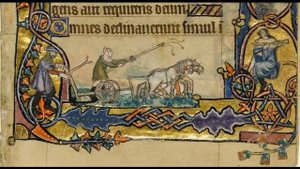 gens aut requirens deum
omnes declinauerunt simul i